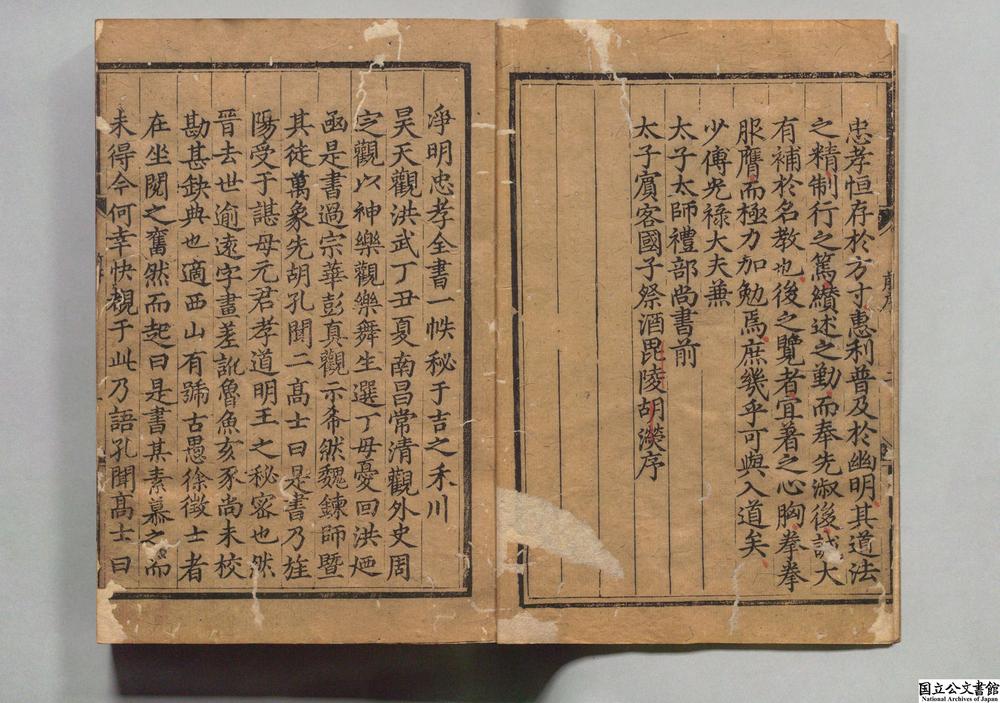 忠孝恒存於方寸惠利普及於幽明其道法
之精制行之篤纘述之勤而奉先淑後誠大
有補於名教也後之覽者宜著之心胸拳拳
服膺而極力加勉焉庶幾乎可與入道矣
少傅光祿大夫兼
太子太師禮部尚書前
太子賓客國子祭酒毘陵胡濙序
淨明忠孝全書一帙秘于吉之禾川
昊天觀洪武丁丑夏南昌常清觀外史周
定觀以神樂觀樂舞生選丁母憂回洪𢌞
函是書過宗華彭真觀示希然魏鍊師暨
其徒萬象先胡孔聞二高士曰是書乃旌
陽受于諶母元君孝道明王之秘密也然
晉去世逾遠字畫差訛魯魚亥豕尚未校
勘甚缺典也適西山有號古愚徐徵士者
在坐閱之奮然而起曰是書某素慕之而
未得今何幸快覩于此乃語孔聞高士曰
國立公文書館
National Archives of Japan